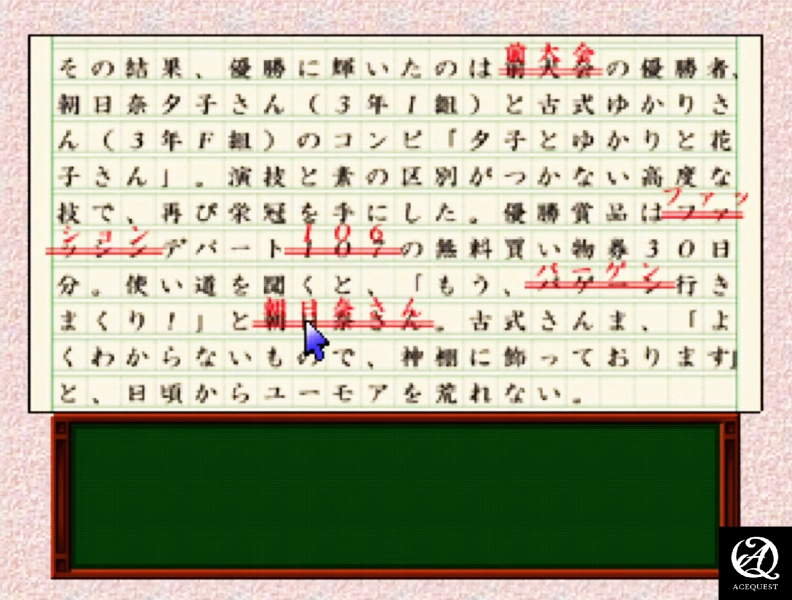 その結果、優勝に輝いたのは前大会の優勝者、
朝日奈夕子さん(3年I組)と古式ゆかりさ
ん(3年F組)のコンビ「夕子とゆかりと花
子さん」。演技と素の区別がつかない高度な
技で、再び栄冠を手にした。優勝賞品はファッ
ションデパート106の無料買い物券30日
分。使い道を聞くと、「もう、バーゲン行き
まくり!」と朝日奈さん。古式さんま、「よ
くわからないもので、神棚に飾っております」
と、日頃からユーモアを荒れない。
ACEQUEST